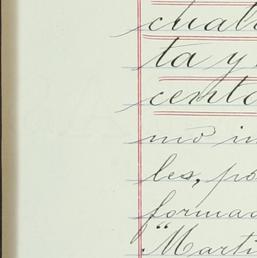 cuat
ta y
cento
mo in
les, po
forma
"Marti